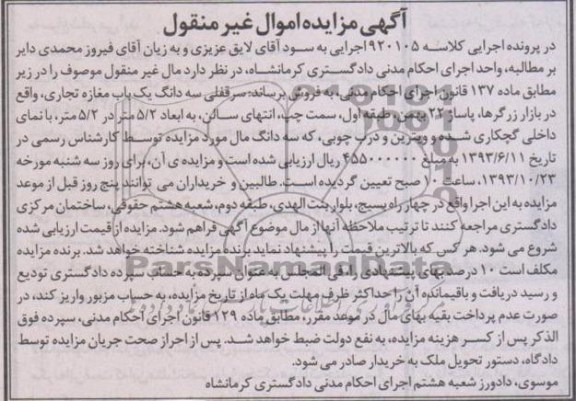 آگهی مزایده اموال غیر منقول
در پرونده اجرایی کلاسه ۹۲۰۱۰۵ اجرایی به سود آقای لایق عزیزی و به زیان آقای فیروز محمدی دایر
بر مطالبه، واحد اجرای احکام مدنی دادگستری کرمانشاه، در نظر دارد مال غیر منقول موصوف را در زیر
مطابق ماده ۱۳۷ قانون اجرای احکام مدنی، به فروش برساند: سرقفلی سه دانگ یک باب مغازه تجاری، واقع
در بازار زرگرها، پاساژ ۲۲ بهمن، طبقه اول، سمت چپ، انتهای سالن، به ابعاد ۵/۲ متر در ۵/۲ متر، با نمای
داخلی گچکاری شده و ویترین و درب چوبی، که سه دانگ مال مورد مزایده توسط کارشناس رسمی در
تاریخ ۱۳۹۳/۶/۱۱ به مبلغ ۴۵۵۰۰۰۰۰۰ ریال ارزیابی شده است و مزایده ی آن، برای روز سه شنبه مورخه
۱۳۹۳/۱۰/۲۳، ساعت ۱۰ صبح تعیین گردیده است. طالبین و خریداران می توانند پنج روز قبل از موعد
مزایده به این اجرا واقع در چهار راه بسیج، بلوار بنت الهدی، طبقه دوم، شعبه هشتم حقوقی، ساختمان مرکزی
دادگستری مراجعه کنند تا ترتیب ملاحظه آنها از مال موضوع آگهی فراهم شود. مزایده از قیمت ارزیابی شده
شروع می شود. هر کس که بالاترین قیمت را پیشنهاد نماید برنده مزایده شناخته خواهد شد. برنده مزایده
مکلف است ۱۰ درصد بهای پیشنهادی را فی المجلس به عنوان سپرده به حساب سپرده دادگستری تودیع
و رسید دریافت و باقیمانده آن را حداکثر ظرف مهلت یک ماه از تاریخ مزایده، به حساب مزبور واریز کند، در
صورت عدم پرداخت بقیه بهای مال در موعد مقرر، مطابق ماده ۱۲۹ قانون اجرای احکام مدنی، سپرده فوق
الذکر پس از کسر هزینه مزایده، به نفع دولت ضبط خواهد شد. پس از احراز صحت جریان مزایده توسط
دادگاه، دستور تحویل ملک به خریدار صادر می شود.
موسوی، دادورز شعبه هشتم اجرای احکام مدنی دادگستری کرمانشاه
ParsNamadData